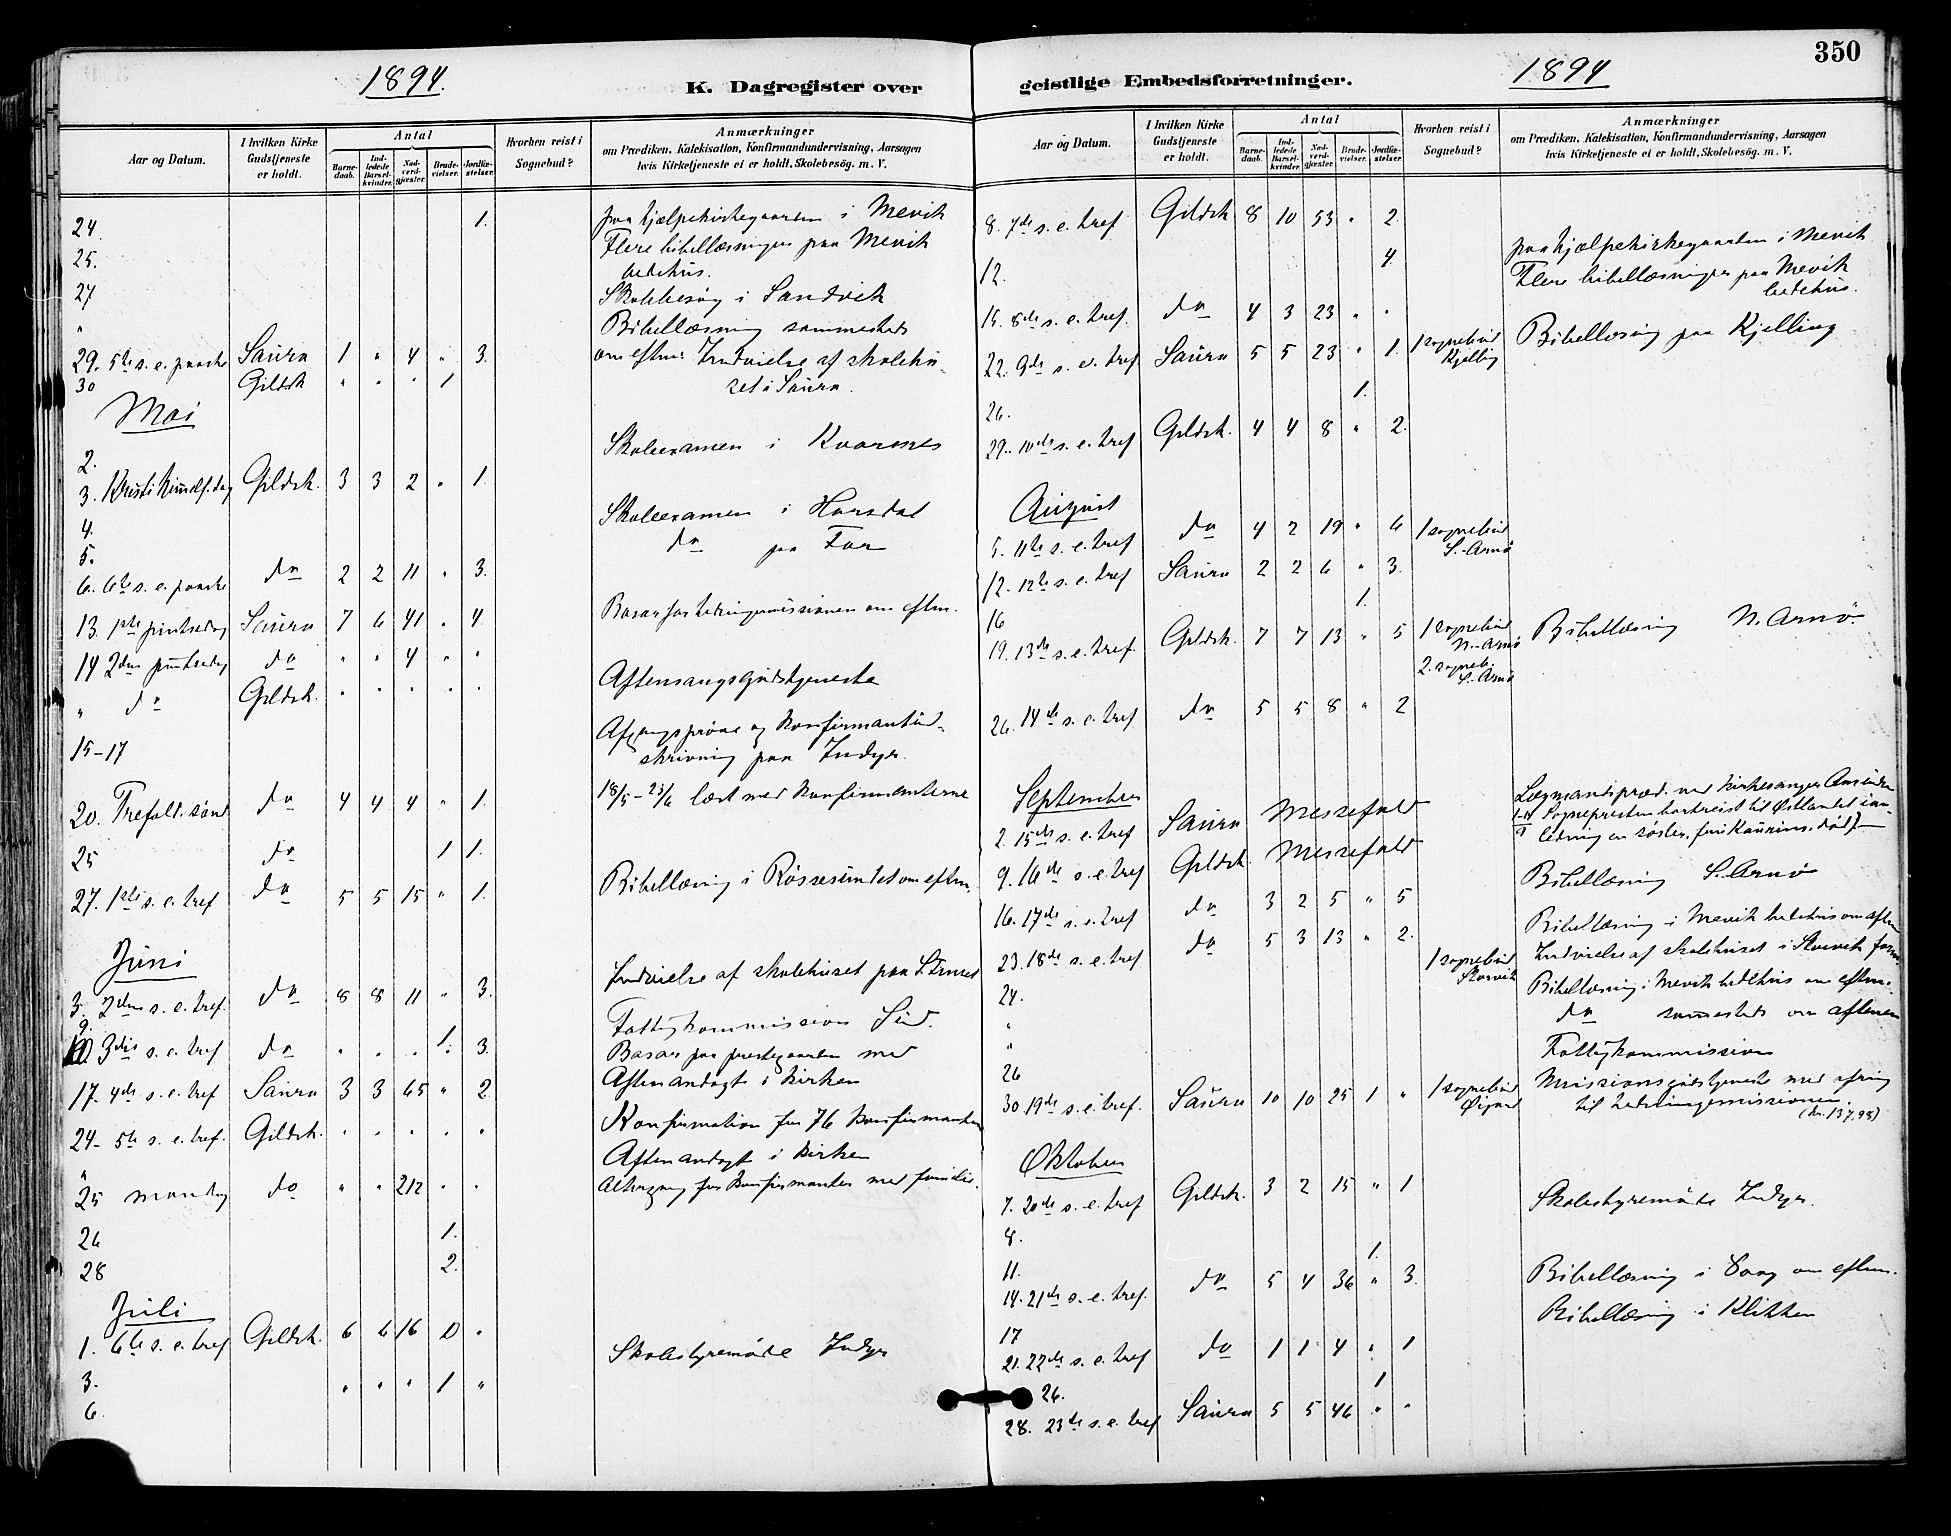 350
1894.
K. Dagregister over
geistlige Embedsforretninger.
1894
Aar og Datum.
I hvilken Kirke Gudstjeneste er holdt.
Antal
Barnedaab.
Indledede Barselkvinder.
Nadverdgjæster.
Brudevielser.
Jordfæstelser.
Hvorhen reist i Sognebud?
Anmærkninger
om Prædiken, Katekisation, Konfirmandundervisning, Aarsagen
hvis Kirketjeneste ei er holdt, Skolebesøg. m. V.
24. 1. paa hjælpekirkegaarden i Mevik
25. Flere bibellæsninger paa Mevik
bedehus.
27 Skolebesøg i Sandvik
" Bibellæsning sammesteds
29. 5te s. e. paaske Saura 1 " 4 " 3. om efterm: Indvielse af skolehu-
30 Gildsk " " " 1 set i Saura.
Mai
2. Skoleexamen i Kvarsnes
3. Kristi himmelf. dag Gildsk. 3 3 2 " 1.
4. Skoleexamen i Horsdal
5. do paa For
6. 6te s. e. paaske do 2 2 11 " 3.
13. 1ste pintsedag Saura 7 6 41 " 4. Basar for hedningemissionen om efterm.
14 2den pintsedag do " " 4 " "
" do Gildsk. " " " " " Aftensangsgudstjeneste
15-17 Afgangsprøve og konfirmantind-
skrivning paa Indyr.
20. Trefold. sønd. do 4 4 4 " 1. 18/5-23/6 læst med konfirmanterne
25 do 1 1.
27. 1ste s. e. tref do 5 5 15 " 1. Bibellæsning i Røssesundet om efterm.
Juni
3. 2den s. e. tref. do 8 8 11 " 3. Indvielse af skolehuset paa
9. 1. Fattigkommission
10 3die s. e. tref do " " " " 3. Basar paa prestegaarden med
Aftenandagt i kirken
17. 4de s. e. tref Saura 3 3 65 " 2.
24. 5te s. e. tref. Gildsk. " " " " " Konfirmation for 76 konfirmanter
" Aftenandagt i kirken
25 mandag do " " 212 " " Altergang for konfirmanter med familie.
26 1.
28 2.
Juli
1. 6te s. e. tref Gildsk. 6 6 16 0 "
3. Skolestyremøde Indyr
6. " " " 1 "
Aar og Datum.
I hvilken Kirke Gudstjeneste er holdt.
Antal
Barnedaab.
Indledede Barselkvinder.
Nadverdgjæster.
Brudevielser.
Jordfæstelser.
Hvorhen reist i Sognebud?
Anmærkninger
om Prædiken, Katekisation, Konfirmandundervisning, Aarsagen
hvis Kirketjeneste ei er holdt, Skolebesøg. m. V.
8. 7de s. e. tref Gildsk 8 10 53 " 2.
12. 4. paa hjælpekirkegaarden i Mevik
Flere bibellæsninger paa Mevik
bedehus.
15. 8de s. e. tref. do 4 3 23 " "
22. 9de s. e. tref Saura 5 5 23 " 1. 1 sognebud Kjelling Bibellæsning paa Kjelling
26. 1.
29. 10de s. e. tref Gildsk. 4 4 8 " 2.
August
5. 11te s. e. tref do 4 2 19 " 6 1 sognebud S.-Arnø
12. 12te s. e. tref Saura 2 2 6 " 3.
16 1.
19. 13de s. e. tref. Gildsk. 7 7 13 " 5 1 sognebud N.-Arnø Bibellæsning N. Arnø.
2. sogneb. S.-Arnø
26. 14de s. e. tref do 5 5 8 " 2
September
2. 15de s. e. tref Saura Messefald Lægmandspræd. ved kirkesanger
Sognepresten bortreist til Østlandet i an-
ledning en søster,
9. 16de s. e. tref Gildsk. Messefald
16. 17de s. e. tref do 3 2 5 " 5 Bibellæsning S. Arnø
23. 18de s. e. tref do 5 3 13 " 2. Bibellæsning i Mevik bedehus om aften
24. 1 sognebud Storvik Indvielse af skolehuset i Storvik form
" Bibellæsning i Mevik bedehus om efterm.
" do sammesteds om aftenen
26 Fattigkommission
30 19de s. e. tref. Saura 10 10 25 1 " 1 sognebud Missionsgudstjeneste med ofring
til hedningemissionen.
(kr. 137,95)
Oktober
7. 20de s. e. tref Gildsk. 3 2 15 " 1
8. Skolestyremøde Indyr.
11. 1.
14. 21de s. e. tref. do 5 4 36 " 3. Bibellæsning i om efterm.
17 Bibellæsning i Klikken
21. 22de s. e. tref do 1 1 4 " 1
26. 1
28. 23de s. e. tref Saura 5 5 46 " "